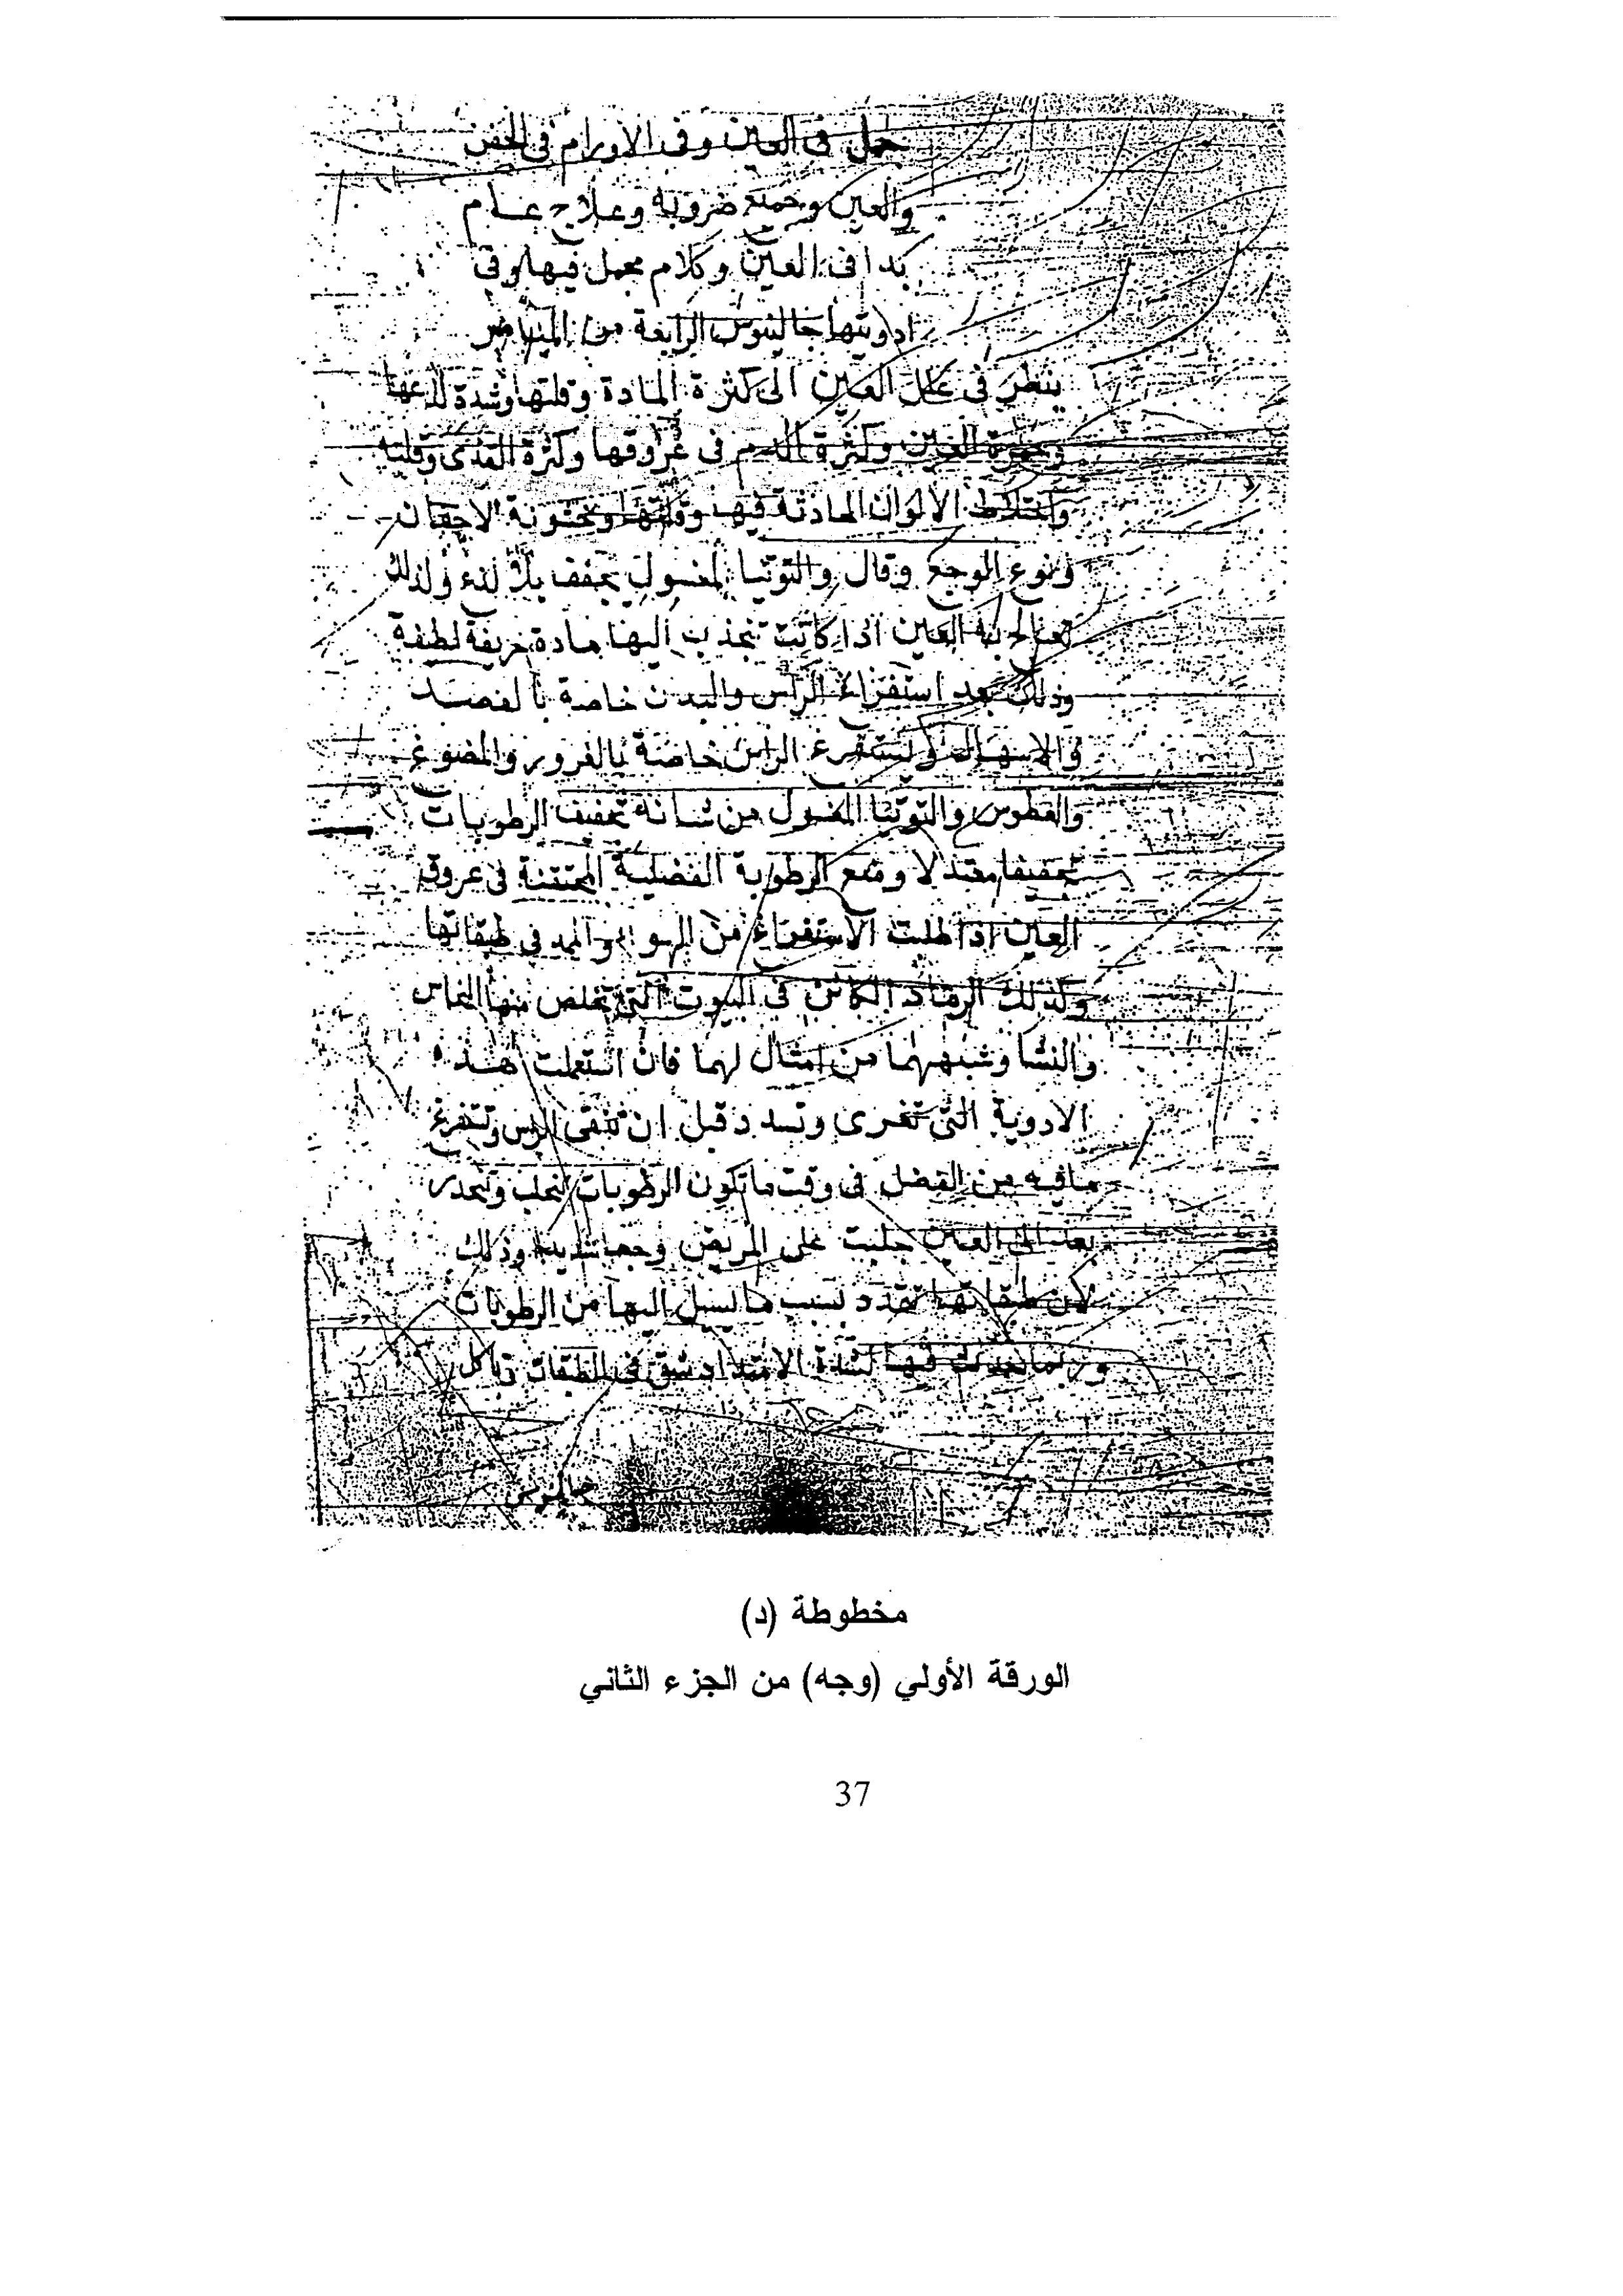 جمل فى العين وفى الاورام فى الجفن
والعين وجميع ضروبه وعلاج عام
بدا فى العين وكلام مجمل فيها وفى
ادويتها جالينوس الرابعة من الميامر
ينظر فى علل العين الى كثرة المادة وقلتها وشدة لذعها
وحمرة العين وكثرة الدم فى عروقها وكثرة القذى وقلته
واختلاط الالوان الحادثة فيها وقلتها وخشونة الاجفان
ونوع الوجع وقال والتوتيا المغسول يجفف بلا لذع ولذلك
تعالج به العين اذا كانت تنجذب اليها مادة حريفة لطيفة
وذلك بعد استفراغ الراس والبدن خاصة بالفصد
والاسهال وليستفرغ الراس خاصة بالغرور والمضوغ
والعطوس والتوتيا المغسول من شانه تجفيف الرطوبات
تجفيفا معتدلا ومنع الرطوبة الفضلية المحتقنة فى عروق
العين اذا طلبت الاستفراغ من فى طبقاتها
وكذلك الرماد الكائن فى البيوت التى يخلص منها النحاس
والنشا وشبههما من امثال لهما فان استعملت هذه
الادوية التى تغرى وتسدد قبل ان تنقى الراس وتستفرغ
ما فيه من الفضل فى وقت ما تكون الرطوبات تتحلب وتنحدر
بعد الى العين جلبت على المريض وجعا شديدا وذلك
لان طبقاتها تتمدد بسبب ما يسيل اليها من الرطوبات
وربما يحدث فيها لشدة الامتداد شق فى الطبقات وتاكل
جالينوس
مخطوطة (د)
الورقة الأولي (وجه) من الجزء الثاني
37